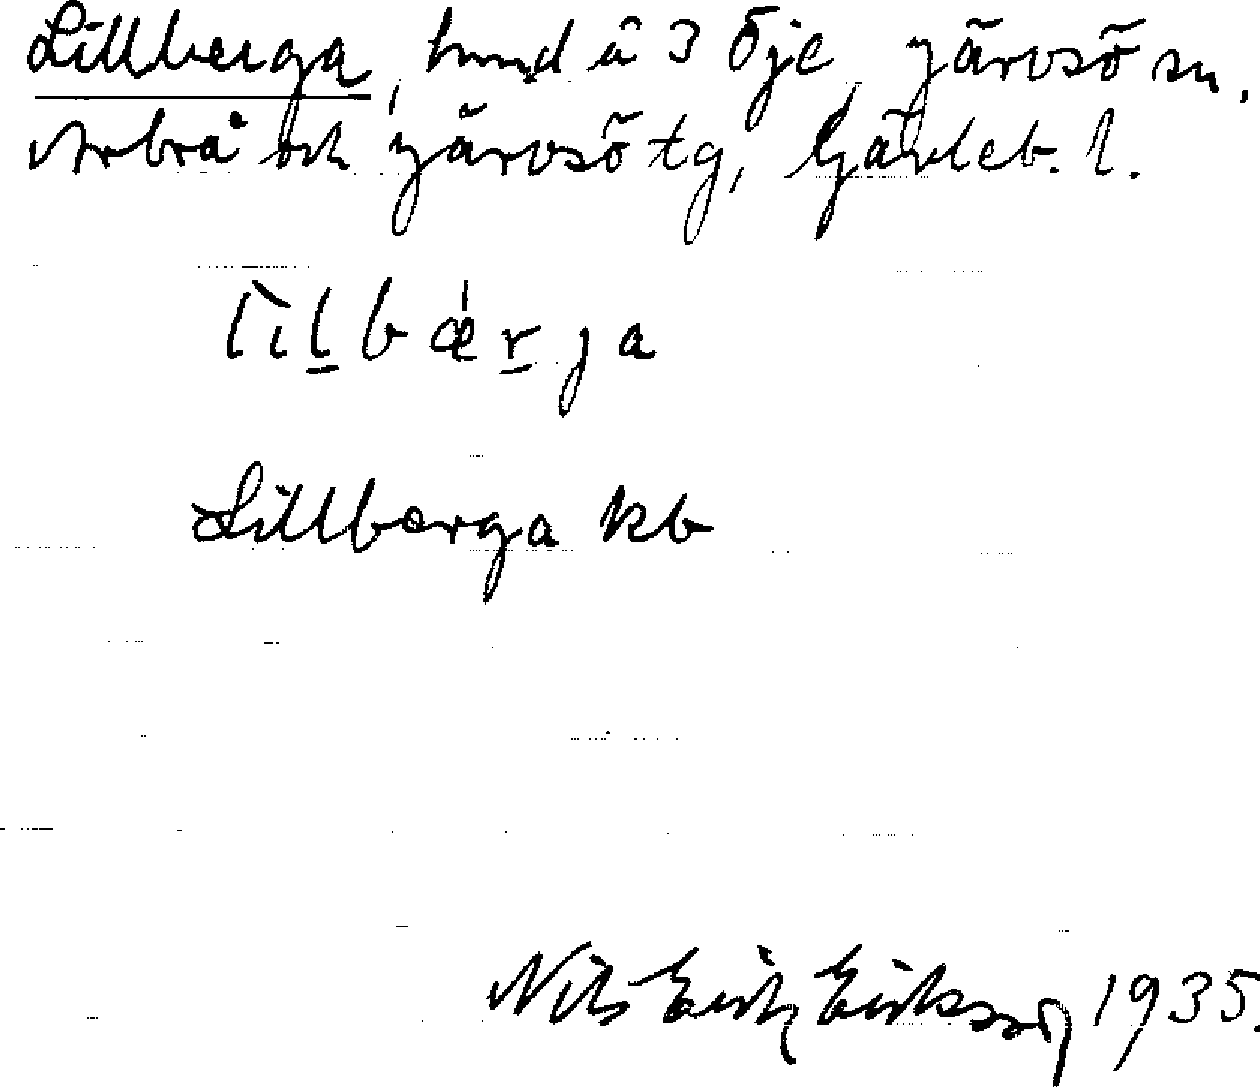 Lillberga, hmd å 3 Öje, Järvsö sn,
Arbrå och Järvsö tg, Gävleb. l.
lìlbǽrja
Lillberga kb
Nils Erik Eriksson 1935.